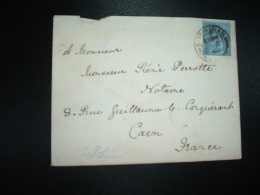 A Monsieur
Monsieur René Perrotte
Notaire
8. Rue Guillaume le Conquérant
Caen
France